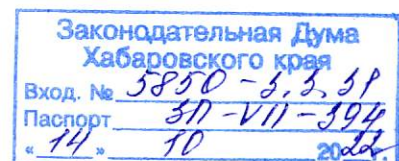 Законодательная Дума
Хабаровского края
Вход. № 5850-3.3.31
Паспорт ЗП-VII-394
« 14 » 10 2022.